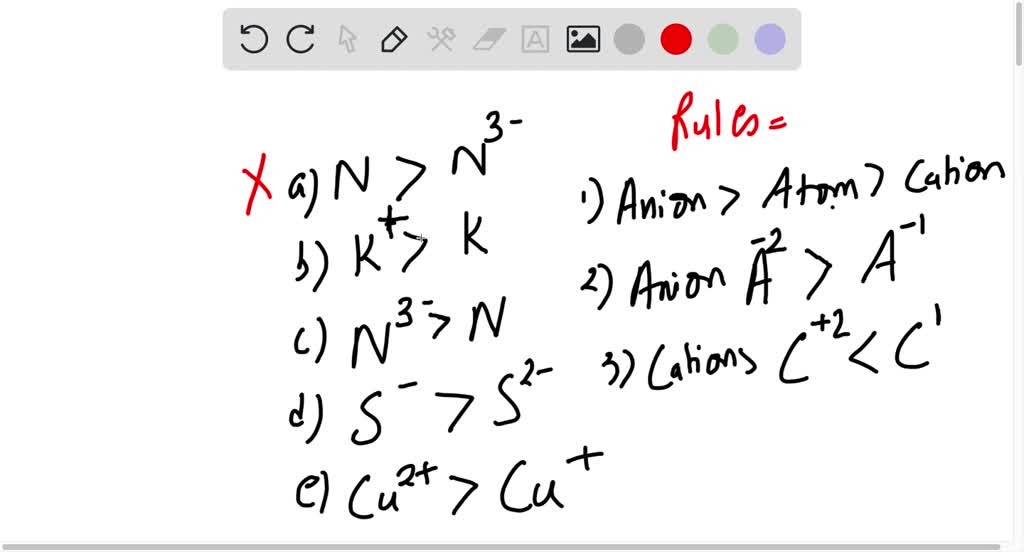 X a) N > N³⁻
b) K⁺ > K
c) N³⁻ > N
d) S⁻ > S²⁻
e) Cu²⁺ > Cu⁺
Rules =
1) Anion > Atom > Cation
2) Anion A⁻² > A⁻¹
3) Cations C⁺² < C¹